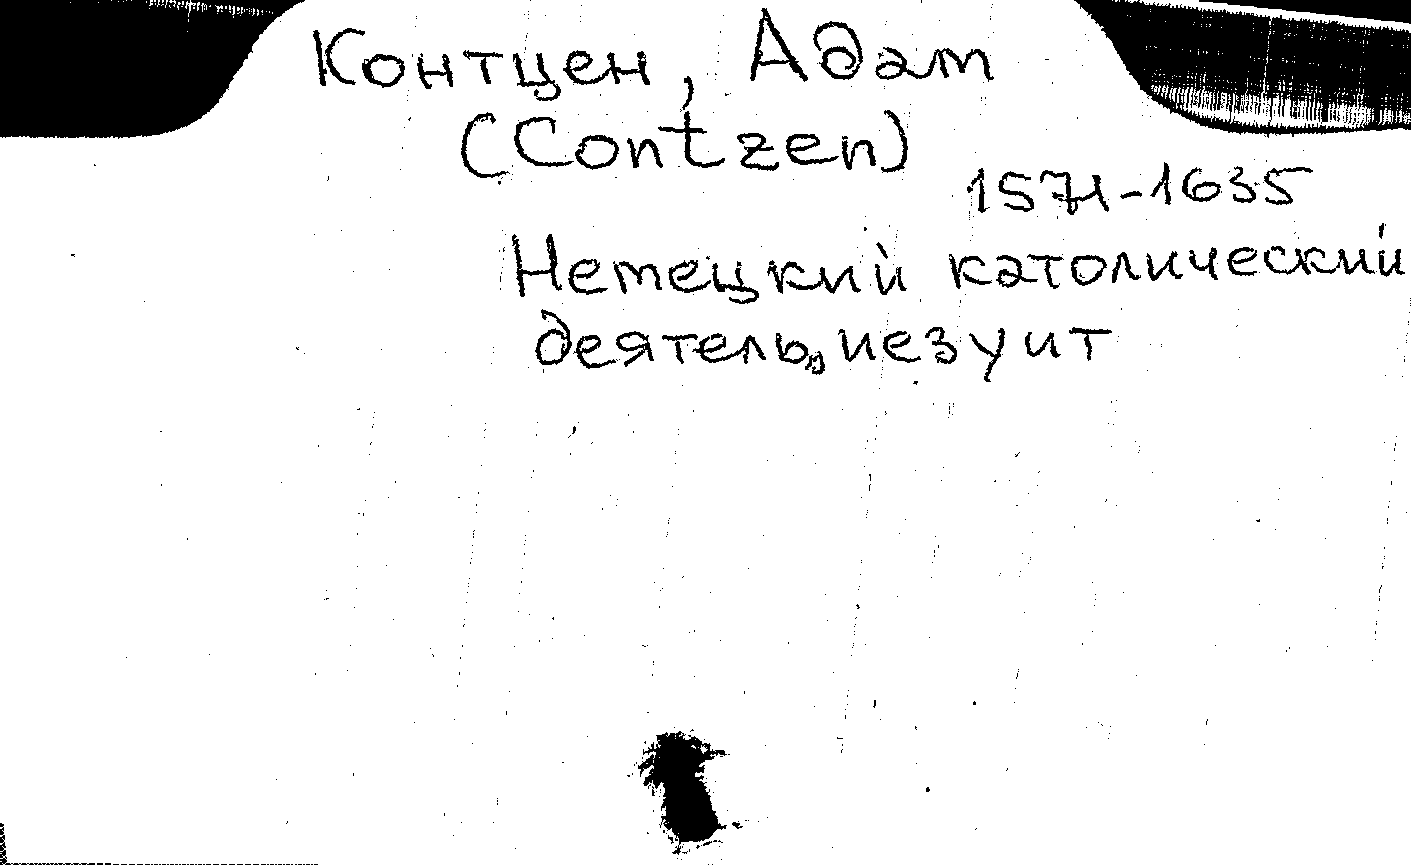 Контцен, Адам
(Contzen)
1571-1635
Немецкий католический
деятель, иезуит